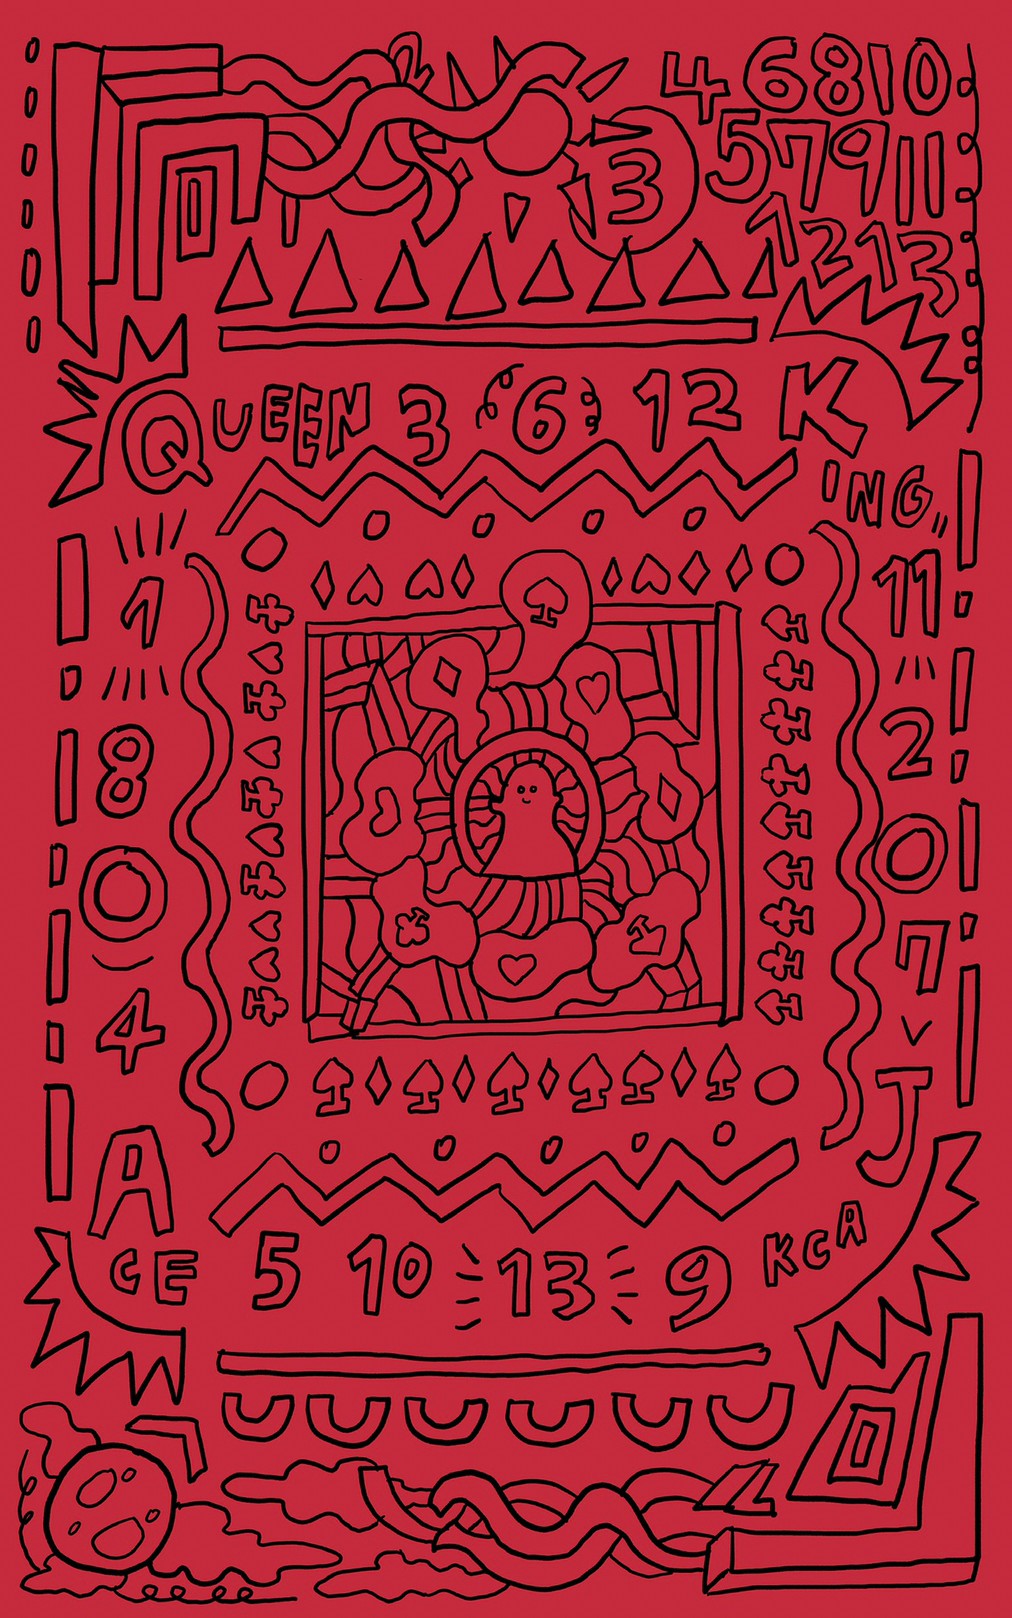 2
4 6 8 10
3
5 7 9 11
12 13
QUEEN 3 6 12 KING
1
11
8
2
0
0
7
4
J
ACE 5 10 13 9 KCA